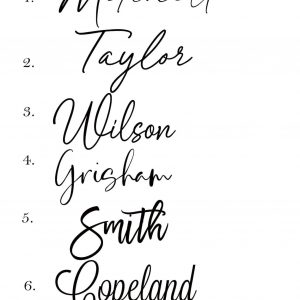 1. Mitchell
2. Taylor
3. Wilson
4. Grisham
5. Smith
6. Copeland